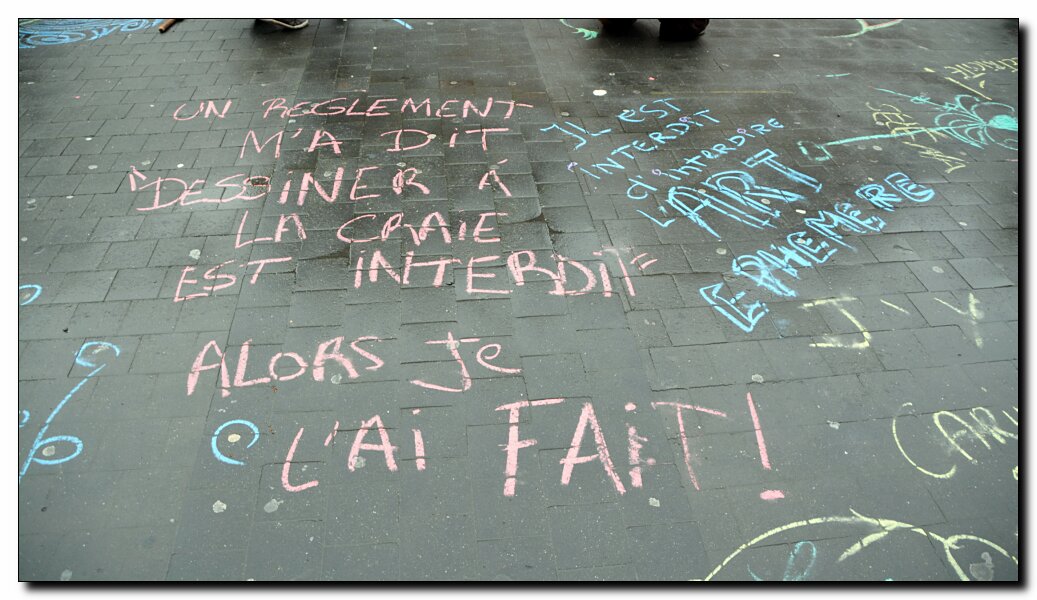 UN REGLEMENT
M'A DiT
"DESSiNER Á
LA CRAiE
EST iNTERDiT"
ALORS Je
L'Ai FAiT!
JL eST
iNTERDiT
d'iNTERDiRE
L'ART
EPHEMERE